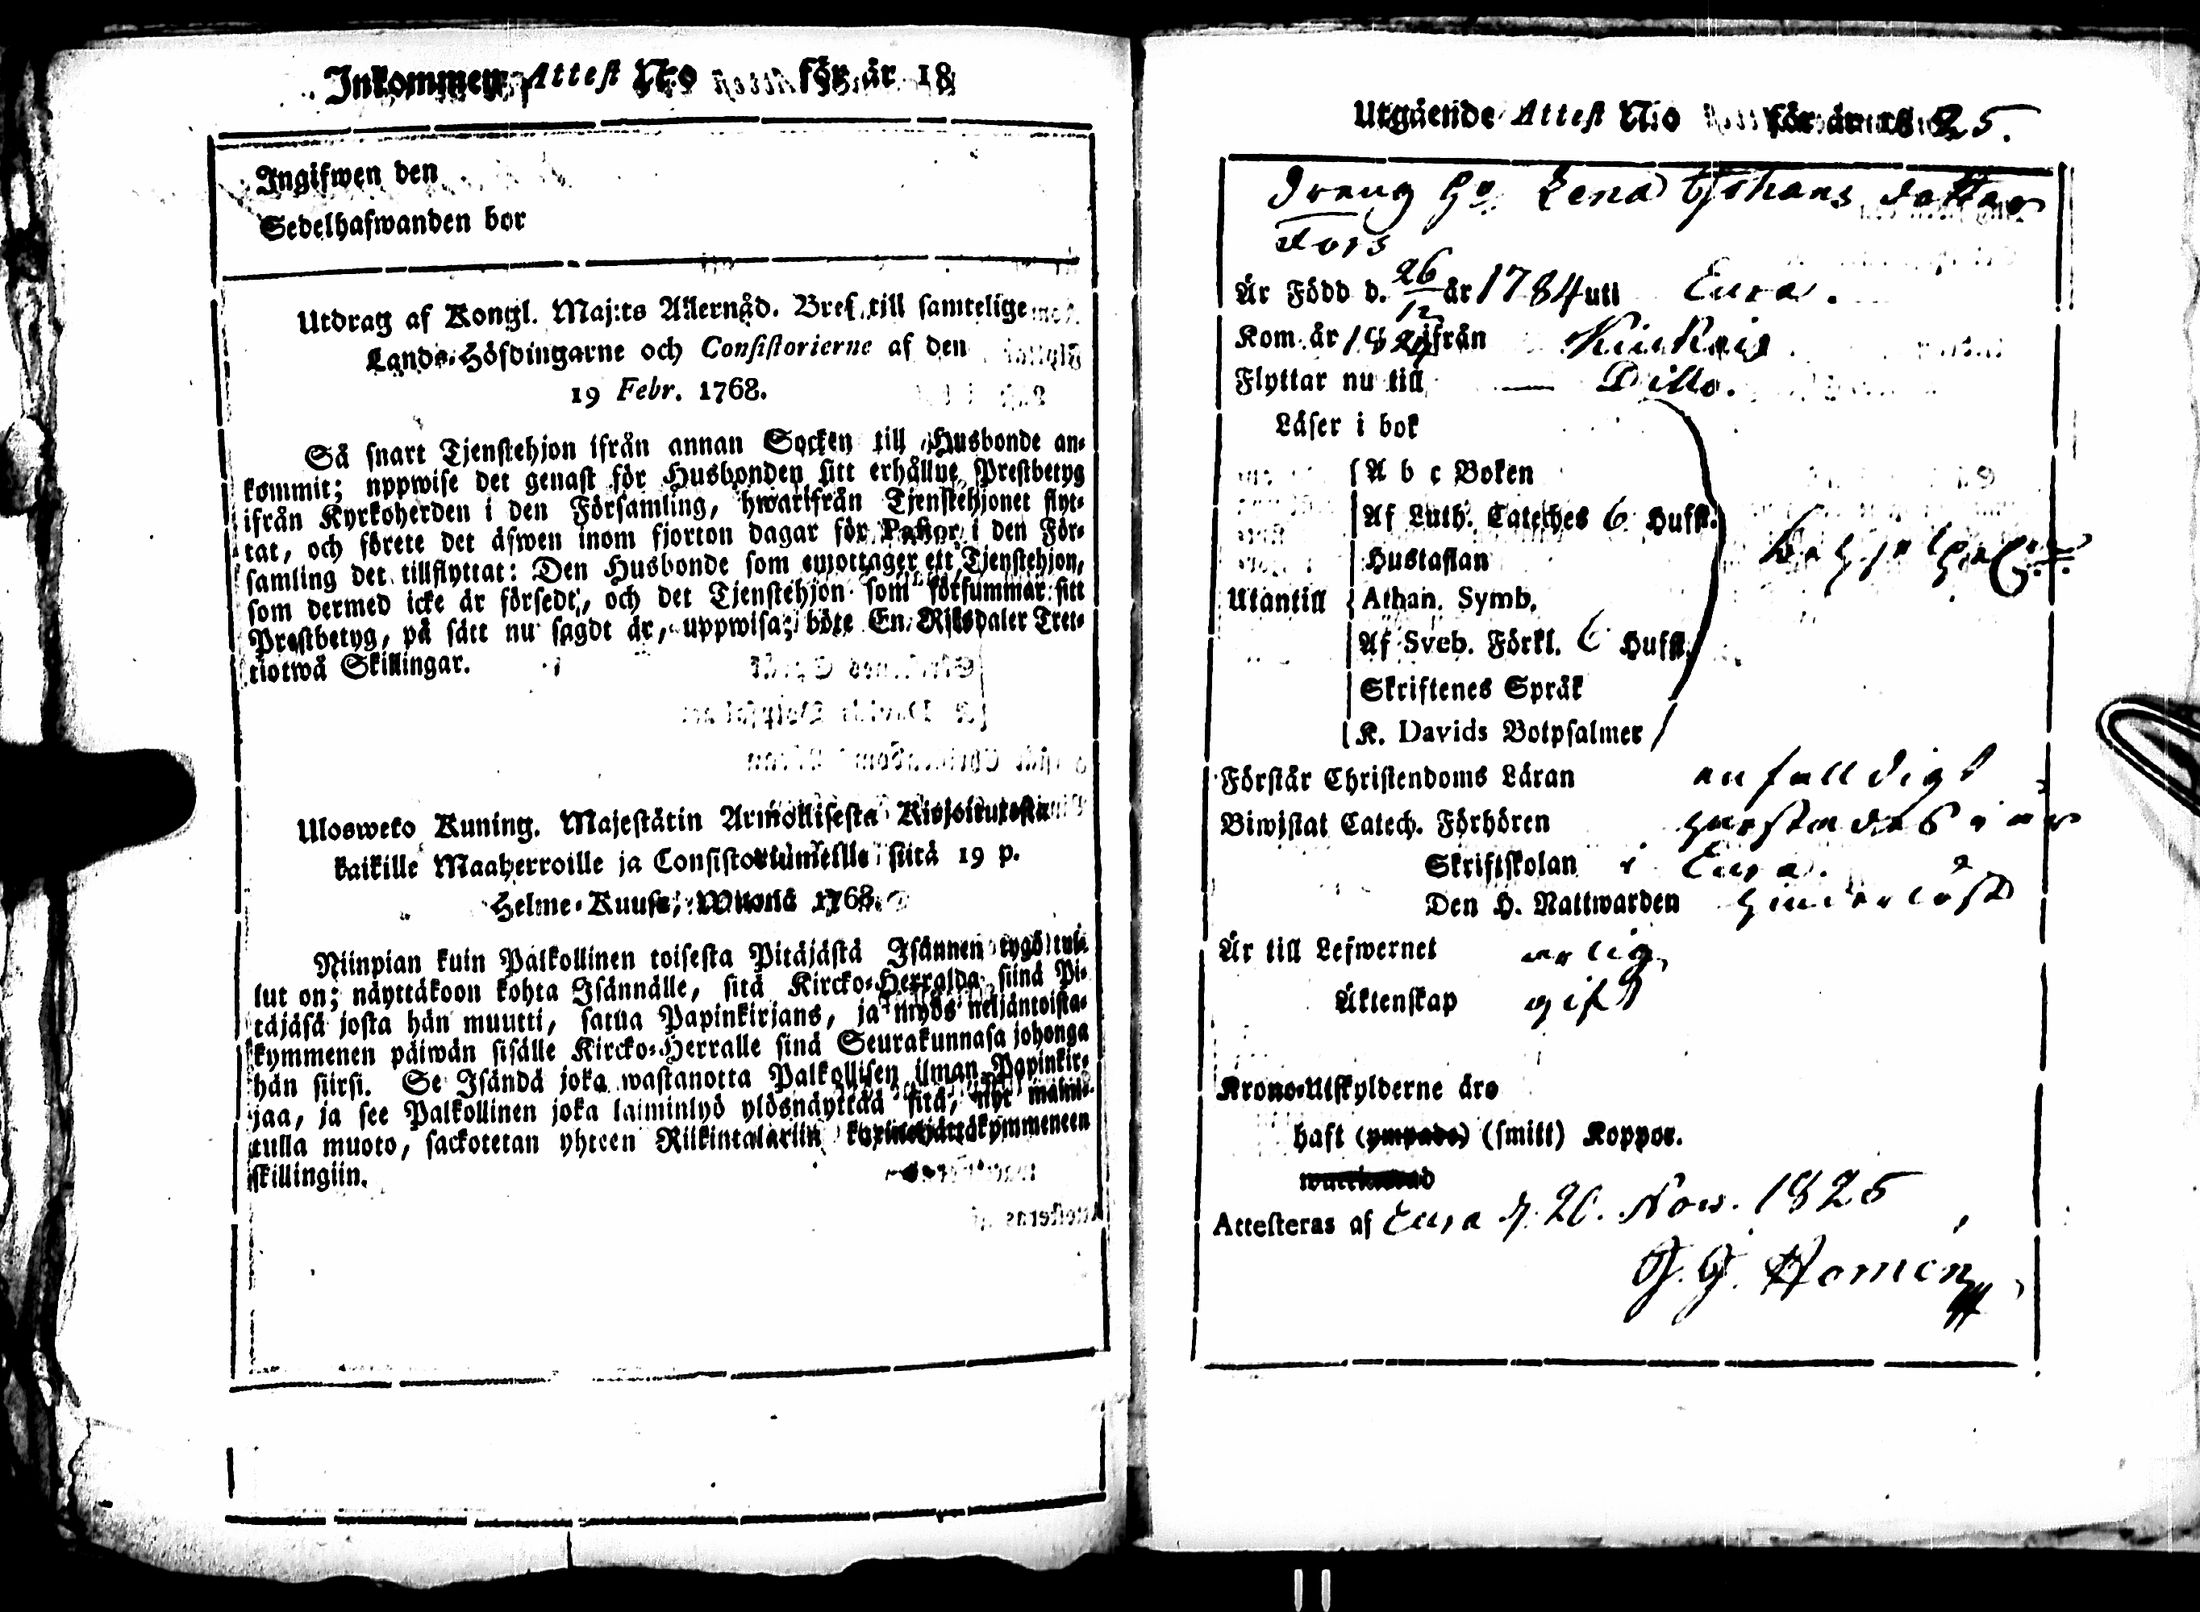 Inkommen Attest N:o för år 18
Ingifwen den
Sedelhafwanden bor
Utdrag af Kongl. Maj:ts Allernåd. Bref till samtelige
Lands-Höfdingarne och Consistorierne af den
19 Febr. 1768.
Så snart Tjenstehjon ifrån annan Socken till Husbonde an-
kommit; uppwise det genast för Husbonden sitt erhållne Prestbetyg
ifrån Kyrkoherden i den Församling, hwarifrån Tjenstehjonet flyt-
tat, och förete det äfwen inom fjorton dagar för Pastor i den För-
samling det tillflyttat: Den Husbonde som emottager ett Tjenstehjon,
som dermed icke är försedt, och det Tjenstehjon som försummar sitt
Prestbetyg, på sätt nu sagdt är, uppwisa; böte En Riksdaler Tret-
tiotwå Skillingar.
Ulosweto Kuning. Majestätin Armollisesta Kirjoituxesta
kaikille Maaherroille ja Consistoriumeille siitä 19 p.
Helme-Kuusa, Wuonä 1768.
Niinpian kuin Palkollinen toisesta Pitäjästä Isännen tygö tul-
lut on; näyttäkoon kohta Isännälle, sitä Kircko-Herralda siinä Pi-
täjäsä josta hän muutti, saatua Papinkirjans, ja myös neljäntoista-
kymmenen päiwän sisälle Kircko-Herralle sinä Seurakunnasa johonga
hän siirsi. Se Isändä joka wastanotta Palkollisen ilman Papinkir-
jaa, ja see Palkollinen joka laiminlyö ylösnäyttää sitä, nyt mainit-
tulla muoto, sackotetan yhteen Riikintalariin kymmeneen
skillingiin.
Utgående Attest N:o för år 1825.
Dreng H:u Lena Johans dotter
Fors
Är Född d. 26/12 år 1784 uti Eura.
Kom år 1824 ifrån Kiukais
Flyttar nu till — Ditto.
Läser i bok
A b c Boken
Af Luth. Cateches 6 Hufst.
Hustaflan
Utantill Athan. Symb.
Af Sveb. Förkl. 6 Hufst.
Skriftenes Språk
K. Davids Botpsalmer
Förstår Christendoms Läran enfalldigt
Biwistat Catech. Förhören
Skriftskolan i Eura.
Den H. Nattwarden hinderlöst
Är till Lefwernet ärlig
Äktenskap gift
Krono-Utskylderne äro
haft (ympade) (smitt) Koppor.
Attesteras af Eura d. 20. Nov. 1825
G. G. Homén